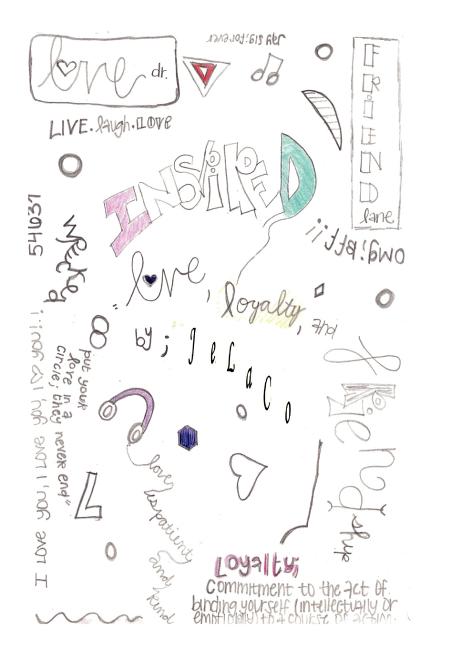 love dr.
jay sig; forever
FRIEND
lane
LIVE. laugh. LOVE
INSPIRED
omg; bff!!
wrecked
"love,
loyalty,
and
friendship
by; JeLaCo
put your
love in a
circle; they never end"
L
love
is patient
and kind
Loyalty;
Commitment to the act of
binding yourself (intellectually or
emotionally) to a course of action.